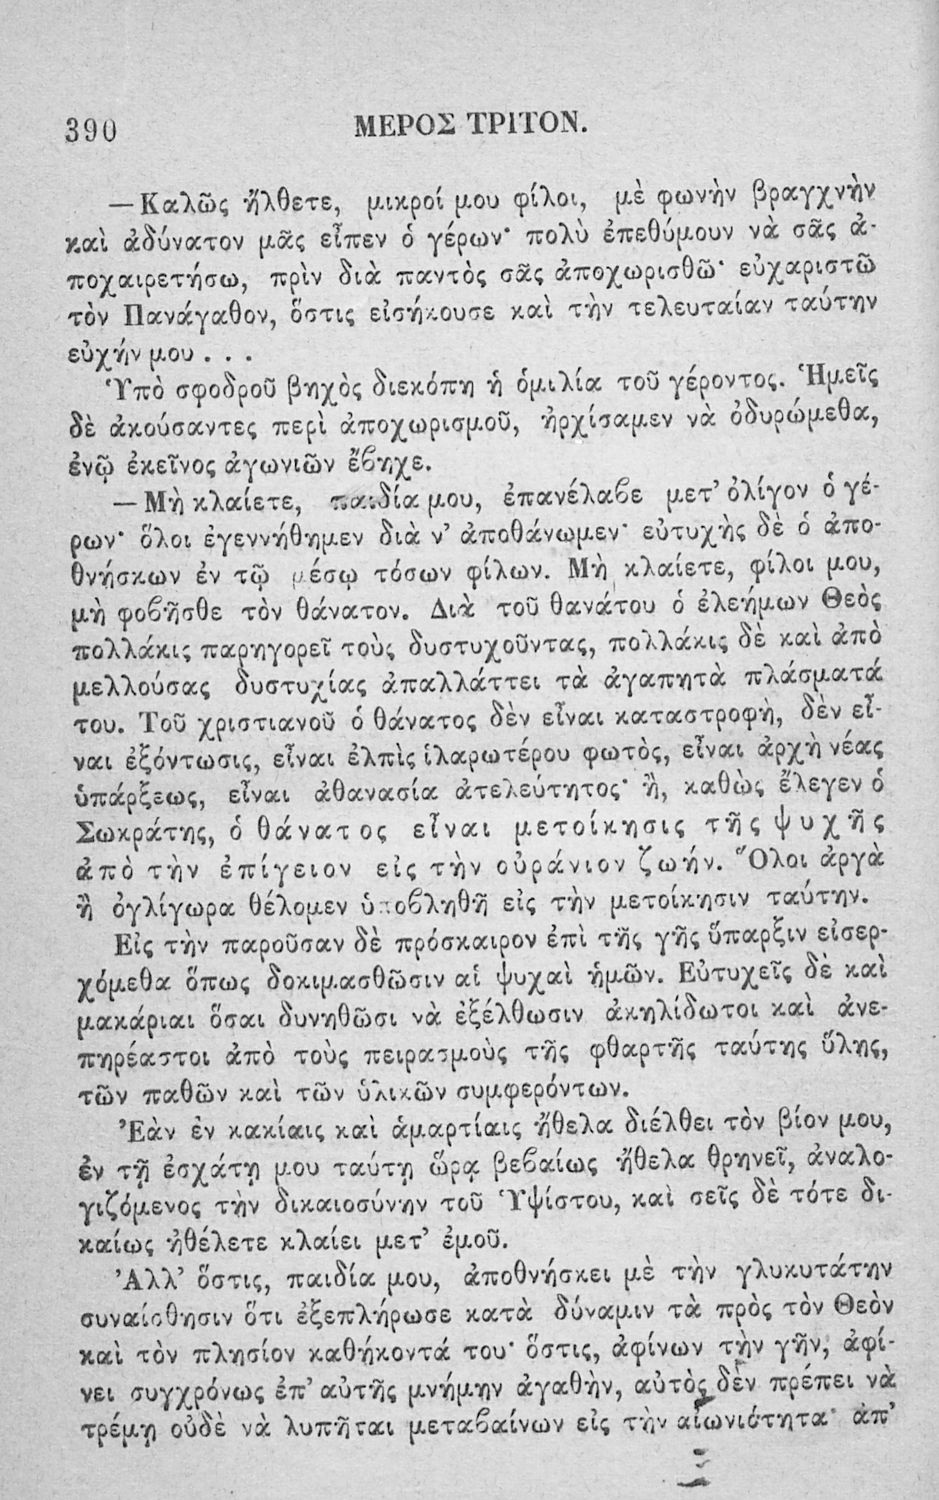 390
ΜΕΡΟΣ ΤΡΙΤΟΝ.
—Καλῶς ἤλθετε, μικροί μου φίλοι, μὲ φωνὴν βραγχνὴν
καὶ ἀδύνατον μᾶς εἶπεν ὁ γέρων· πολὺ ἐπεθύμουν νὰ σᾶς ἀ-
ποχαιρετήσω, πρὶν διὰ παντὸς σᾶς ἀποχωρισθῶ· εὐχαριστῶ
τὸν Πανάγαθον, ὅστις εἰσήκουσε καὶ τὴν τελευταίαν ταύτην
εὐχήν μου . . .
Ὑπὸ σφοδροῦ βηχὸς διεκόπη ἡ ὁμιλία τοῦ γέροντος. Ἡμεῖς
δὲ ἀκούσαντες περὶ ἀποχωρισμοῦ, ἠρχίσαμεν νὰ ὀδυρώμεθα,
ἐνῷ ἐκεῖνος ἀγωνιῶν ἔβηχε.
—Μὴ κλαίετε, παιδία μου, ἐπανέλαβε μετ' ὀλίγον ὁ γέ-
ρων· ὅλοι ἐγεννήθημεν διὰ ν' ἀποθάνωμεν· εὐτυχὴς δὲ ὁ ἀπο-
θνήσκων ἐν τῷ μέσῳ τόσων φίλων. Μὴ κλαίετε, φίλοι μου,
μὴ φοβῆσθε τὸν θάνατον. Διὰ τοῦ θανάτου ὁ ἐλεήμων Θεὸς
πολλάκις παρηγορεῖ τοὺς δυστυχοῦντας, πολλάκις δὲ καὶ ἀπὸ
μελλούσας δυστυχίας ἀπαλλάττει τὰ ἀγαπητὰ πλάσματά
του. Τοῦ χριστιανοῦ ὁ θάνατος δὲν εἶναι καταστροφὴ, δὲν εἶ-
ναι ἐξόντωσις, εἶναι ἐλπὶς ἱλαρωτέρου φωτὸς, εἶναι ἀρχὴ νέας
ὑπάρξεως, εἶναι ἀθανασία ἀτελεύτητος· ἢ, καθὼς ἔλεγεν ὁ
Σωκράτης, ὁ θάνατος εἶναι μετοίκησις τῆς ψυχῆς
ἀπὸ τὴν ἐπίγειον εἰς τὴν οὐράνιον ζωήν. Ὅλοι ἀργὰ
ἢ ὀγλίγωρα θέλομεν ὑποβληθῆ εἰς τὴν μετοίκησιν ταύτην.
Εἰς τὴν παροῦσαν δὲ πρόσκαιρον ἐπὶ τῆς γῆς ὕπαρξιν εἰσερ-
χόμεθα ὅπως δοκιμασθῶσιν αἱ ψυχαὶ ἡμῶν. Εὐτυχεῖς δὲ καὶ
μακάριαι ὅσαι δυνηθῶσι νὰ ἐξέλθωσιν ἀκηλίδωτοι καὶ ἀνε-
πηρέαστοι ἀπὸ τοὺς πειρασμοὺς τῆς φθαρτῆς ταύτης ὕλης,
τῶν παθῶν καὶ τῶν ὑλικῶν συμφερόντων.
Ἐὰν ἐν κακίαις καὶ ἁμαρτίαις ἤθελα διέλθει τὸν βίον μου,
ἐν τῇ ἐσχάτῃ μου ταύτῃ ὥρᾳ βεβαίως ἤθελα θρηνεῖ, ἀναλο-
γιζόμενος τὴν δικαιοσύνην τοῦ Ὑψίστου, καὶ σεῖς δὲ τότε δι-
καίως ἠθέλετε κλαίει μετ' ἐμοῦ.
Ἀλλ' ὅστις, παιδία μου, ἀποθνήσκει μὲ τὴν γλυκυτάτην
συναίσθησιν ὅτι ἐξεπλήρωσε κατὰ δύναμιν τὰ πρὸς τὸν Θεὸν
καὶ τὸν πλησίον καθήκοντά του· ὅστις, ἀφίνων τὴν γῆν, ἀφί-
νει συγχρόνως ἐπ' αὐτῆς μνήμην ἀγαθὴν, αὐτὸς δὲν πρέπει νὰ
τρέμῃ οὐδὲ νὰ λυπῆται μεταβαίνων εἰς τὴν αἰωνιότητα· ἀπ'